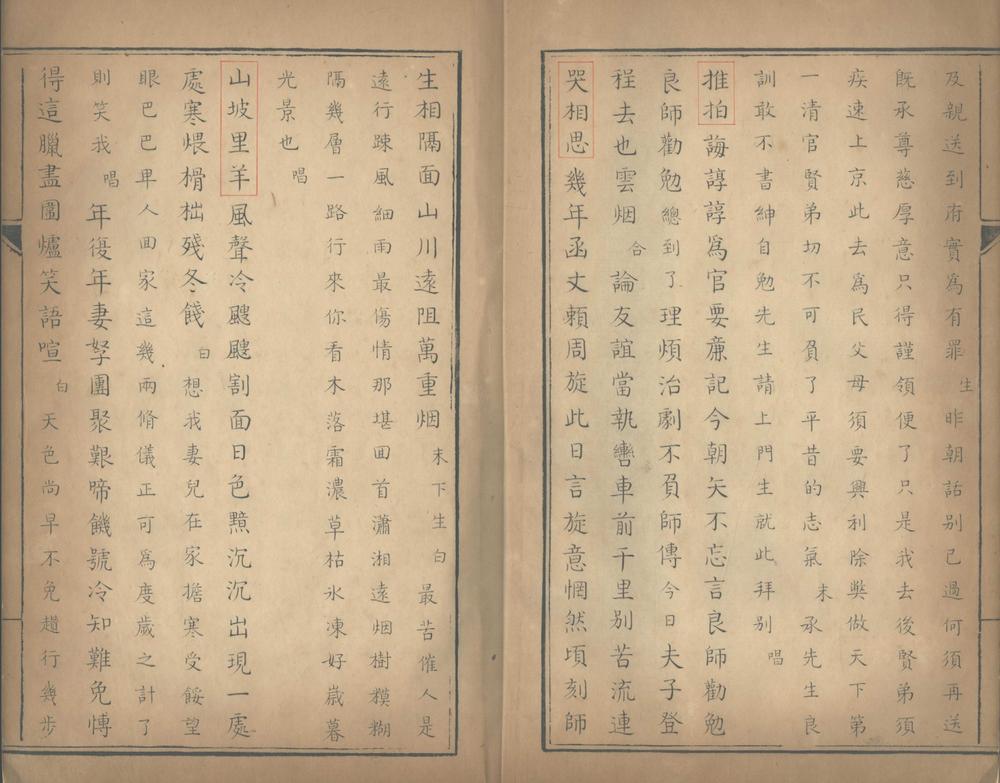 及親送到府實為有罪生昨朝話別已過何須再送
既承尊慈厚意只得謹領便了只是我去後賢弟須
疾速上京此去為民父母須要興利除獘做天下第
一清官賢弟切不可負了平昔的志氣末承先生良
訓敢不書紳自勉先生請上門生就此拜别唱
推拍誨諄諄為官要亷記今朝矢不忘言良師勸勉
良師勸勉總到了理煩治劇不負師傳今日夫子登
程去也雲烟合論友誼當執轡車前千里别苦流連
哭相思幾年函丈賴周旋此日言旋意惘然頃刻師
生相隔面山川遠阻萬重烟末下生白最苦催人是
遠行踈風細雨最傷情那堪囬首瀟湘遠烟樹糢糊
隔幾層一路行來你看木落霜濃草枯氷凍好歲暮
光景也唱
山坡里羊風聲冷颼颼割面日色黯沉沉出現一處
處寒煨榾柮殘冬餞白想我妻兒在家擔寒受餒望
眼巴巴畀人囬家這幾兩脩儀正可為度歲之計了
則笑我唱年復年妻孥團聚艱啼饑號冷知難免慱
得這臘盡圍爐笑語喧白天色尚早不免趲行幾步